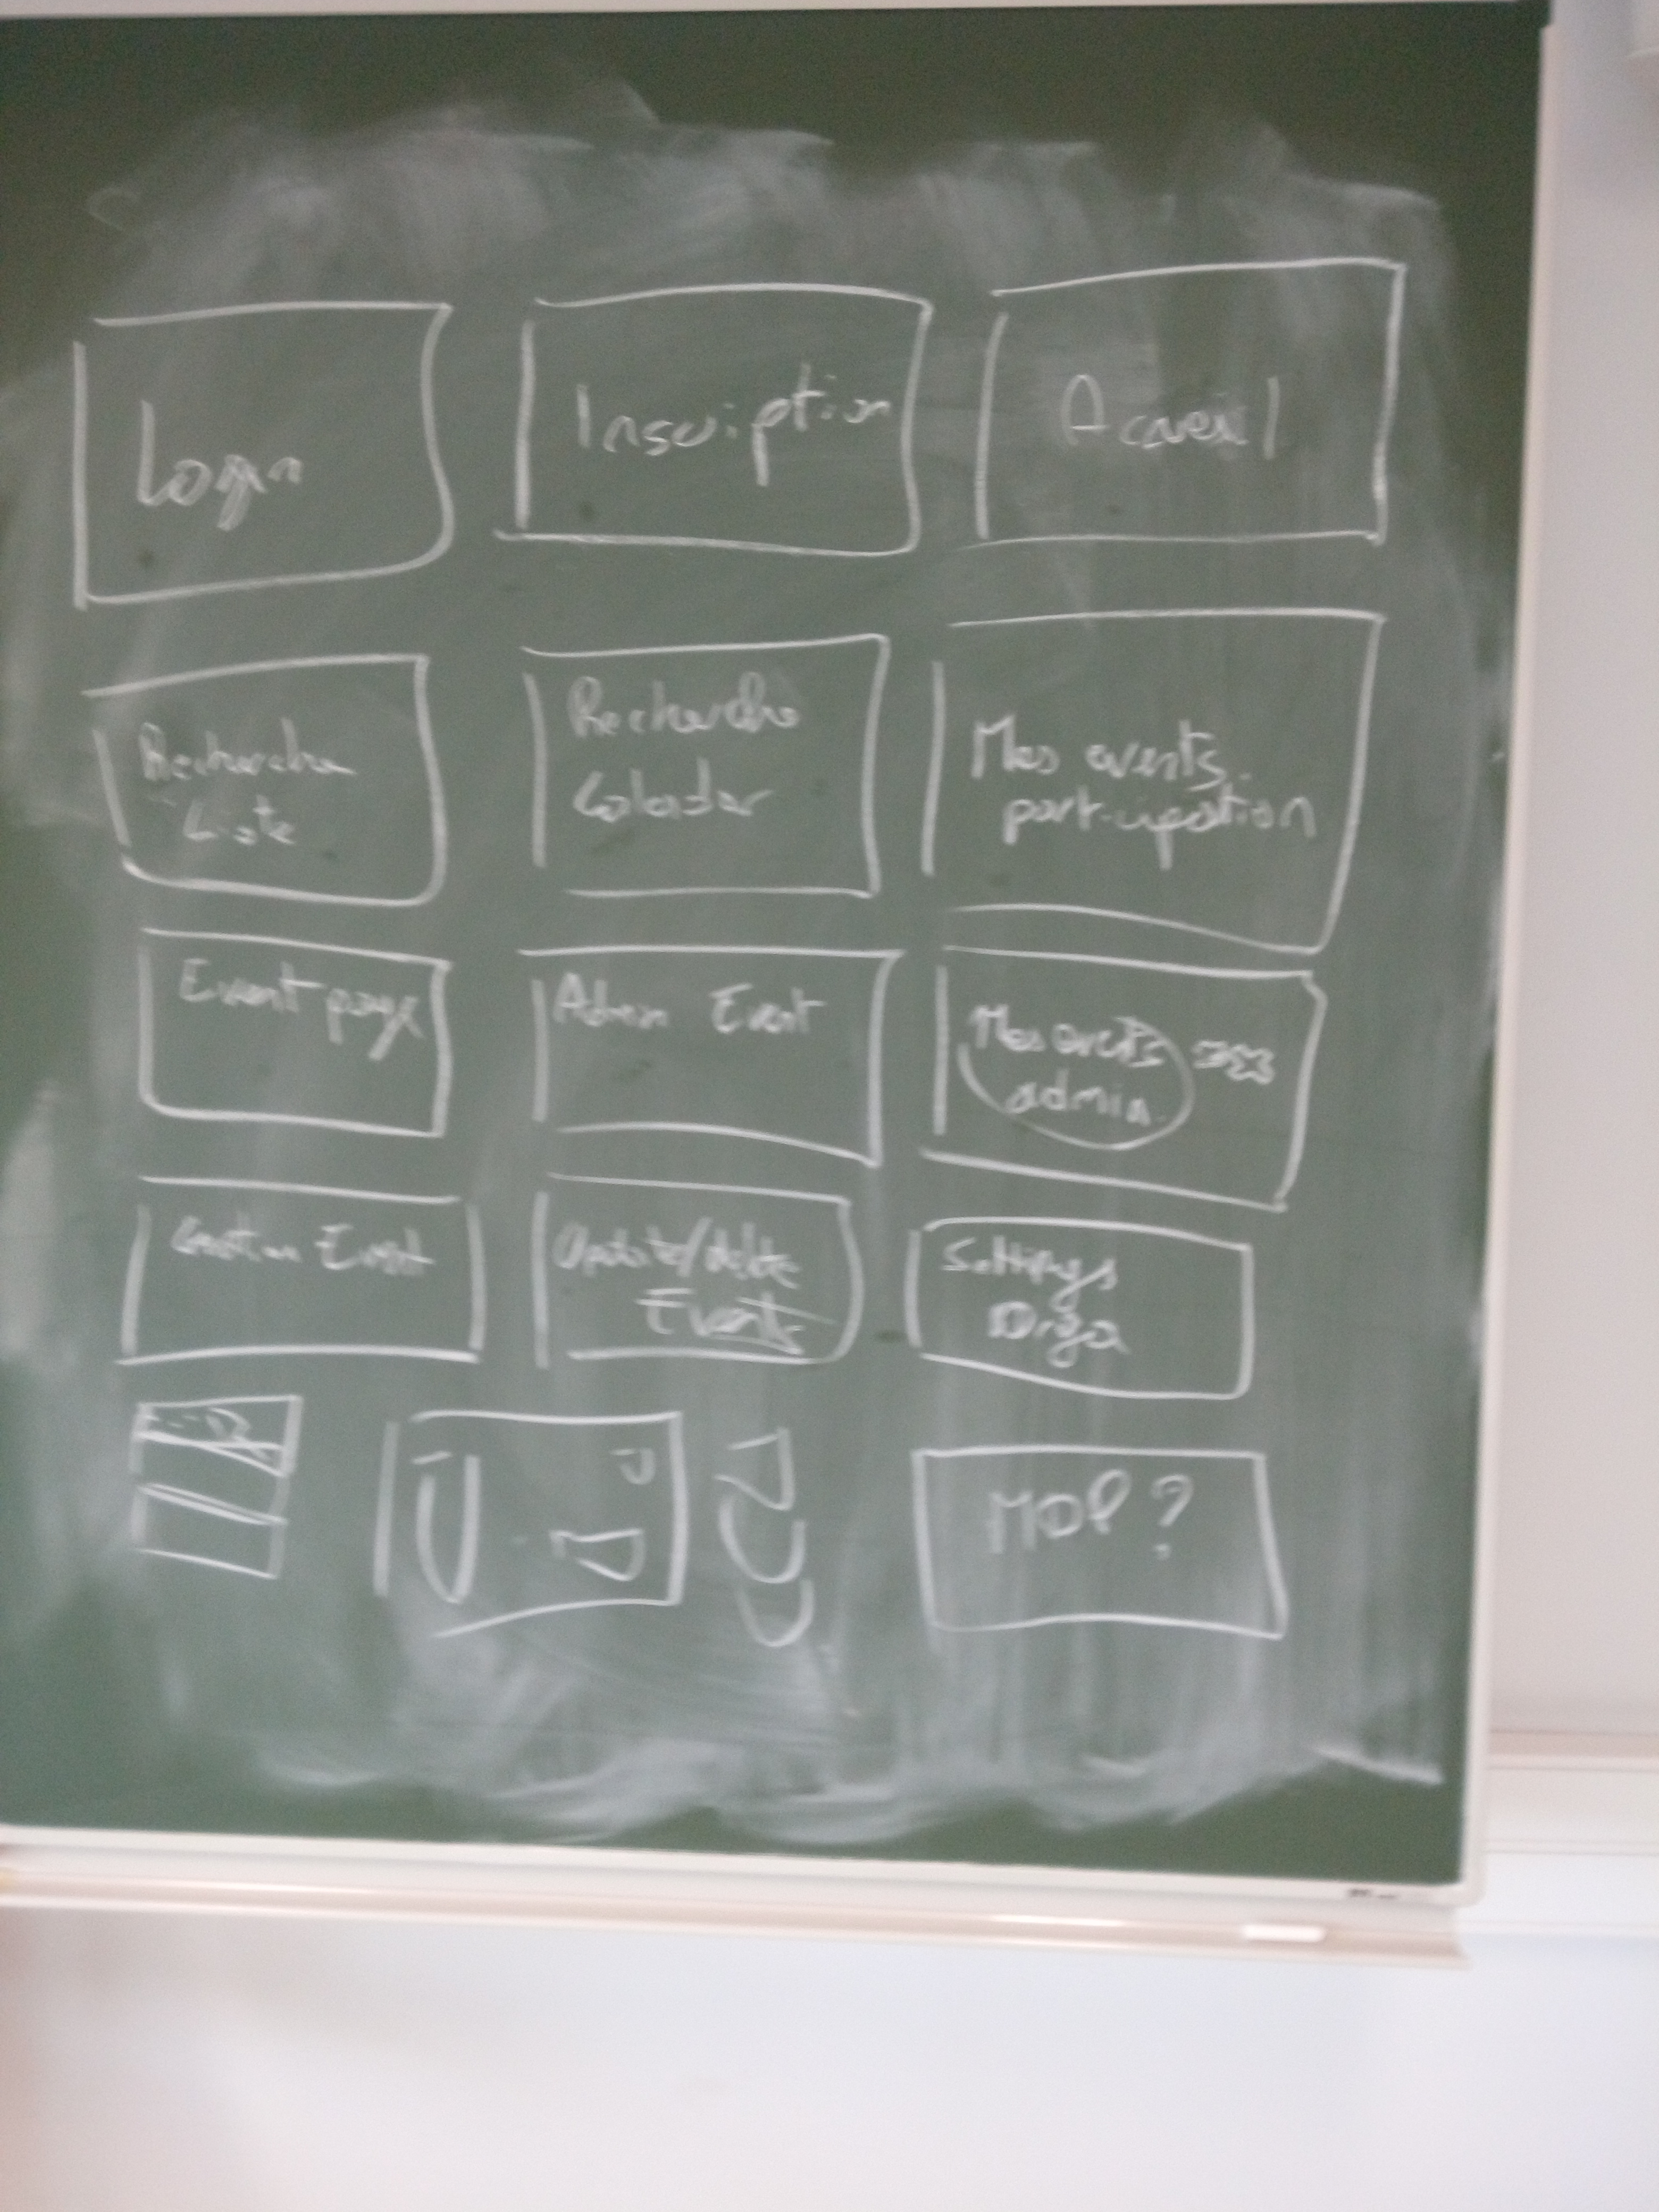 Login
Inscription
Accueil
Recherche
Liste
Recherche
Calendar
Mes events
participation
Event page
Admin Event
Mes events
admin
Event
Update/delete
Event
Settings
Orga
MDP ?